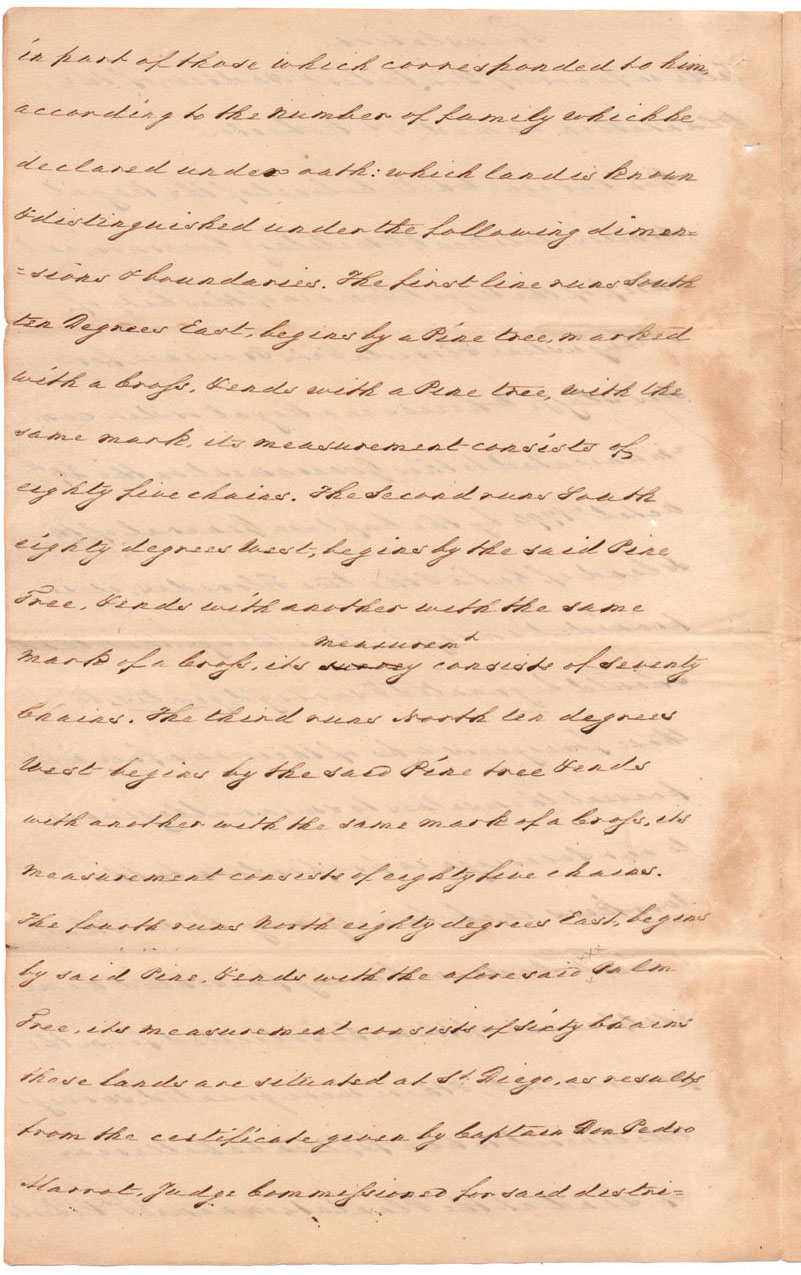 in part of those which corresponded to him,
according to the number of family which he
declared under oath: which land is known
& distinguished under the following dimen=
=sions & boundaries. The first line runs South
ten Degrees East, begins by a Pine tree, marked
with a Cross, & ends with a Pine tree, with the
same mark, its measurement consists of
eighty five chains. The Second runs South
eighty degrees West, begins by the said Pine
Tree, & ends with another with the same
measuremt
mark of a Cross, its survey consists of seventy
Chains. The third runs North ten degrees
West begins by the said Pine tree & ends
with another with the same mark of a Cross, its
measurement consists of eighty five chains.
The fourth runs North eighty degrees East, begins
by said Pine, & ends with the aforesaid Palm
xxx
Tree, its measurement consists of sixty Chains
those lands are situated at St. Diego, as results
from the certificate given by Captain Don Pedro
Marrot, Judge Commissioned for said distri=